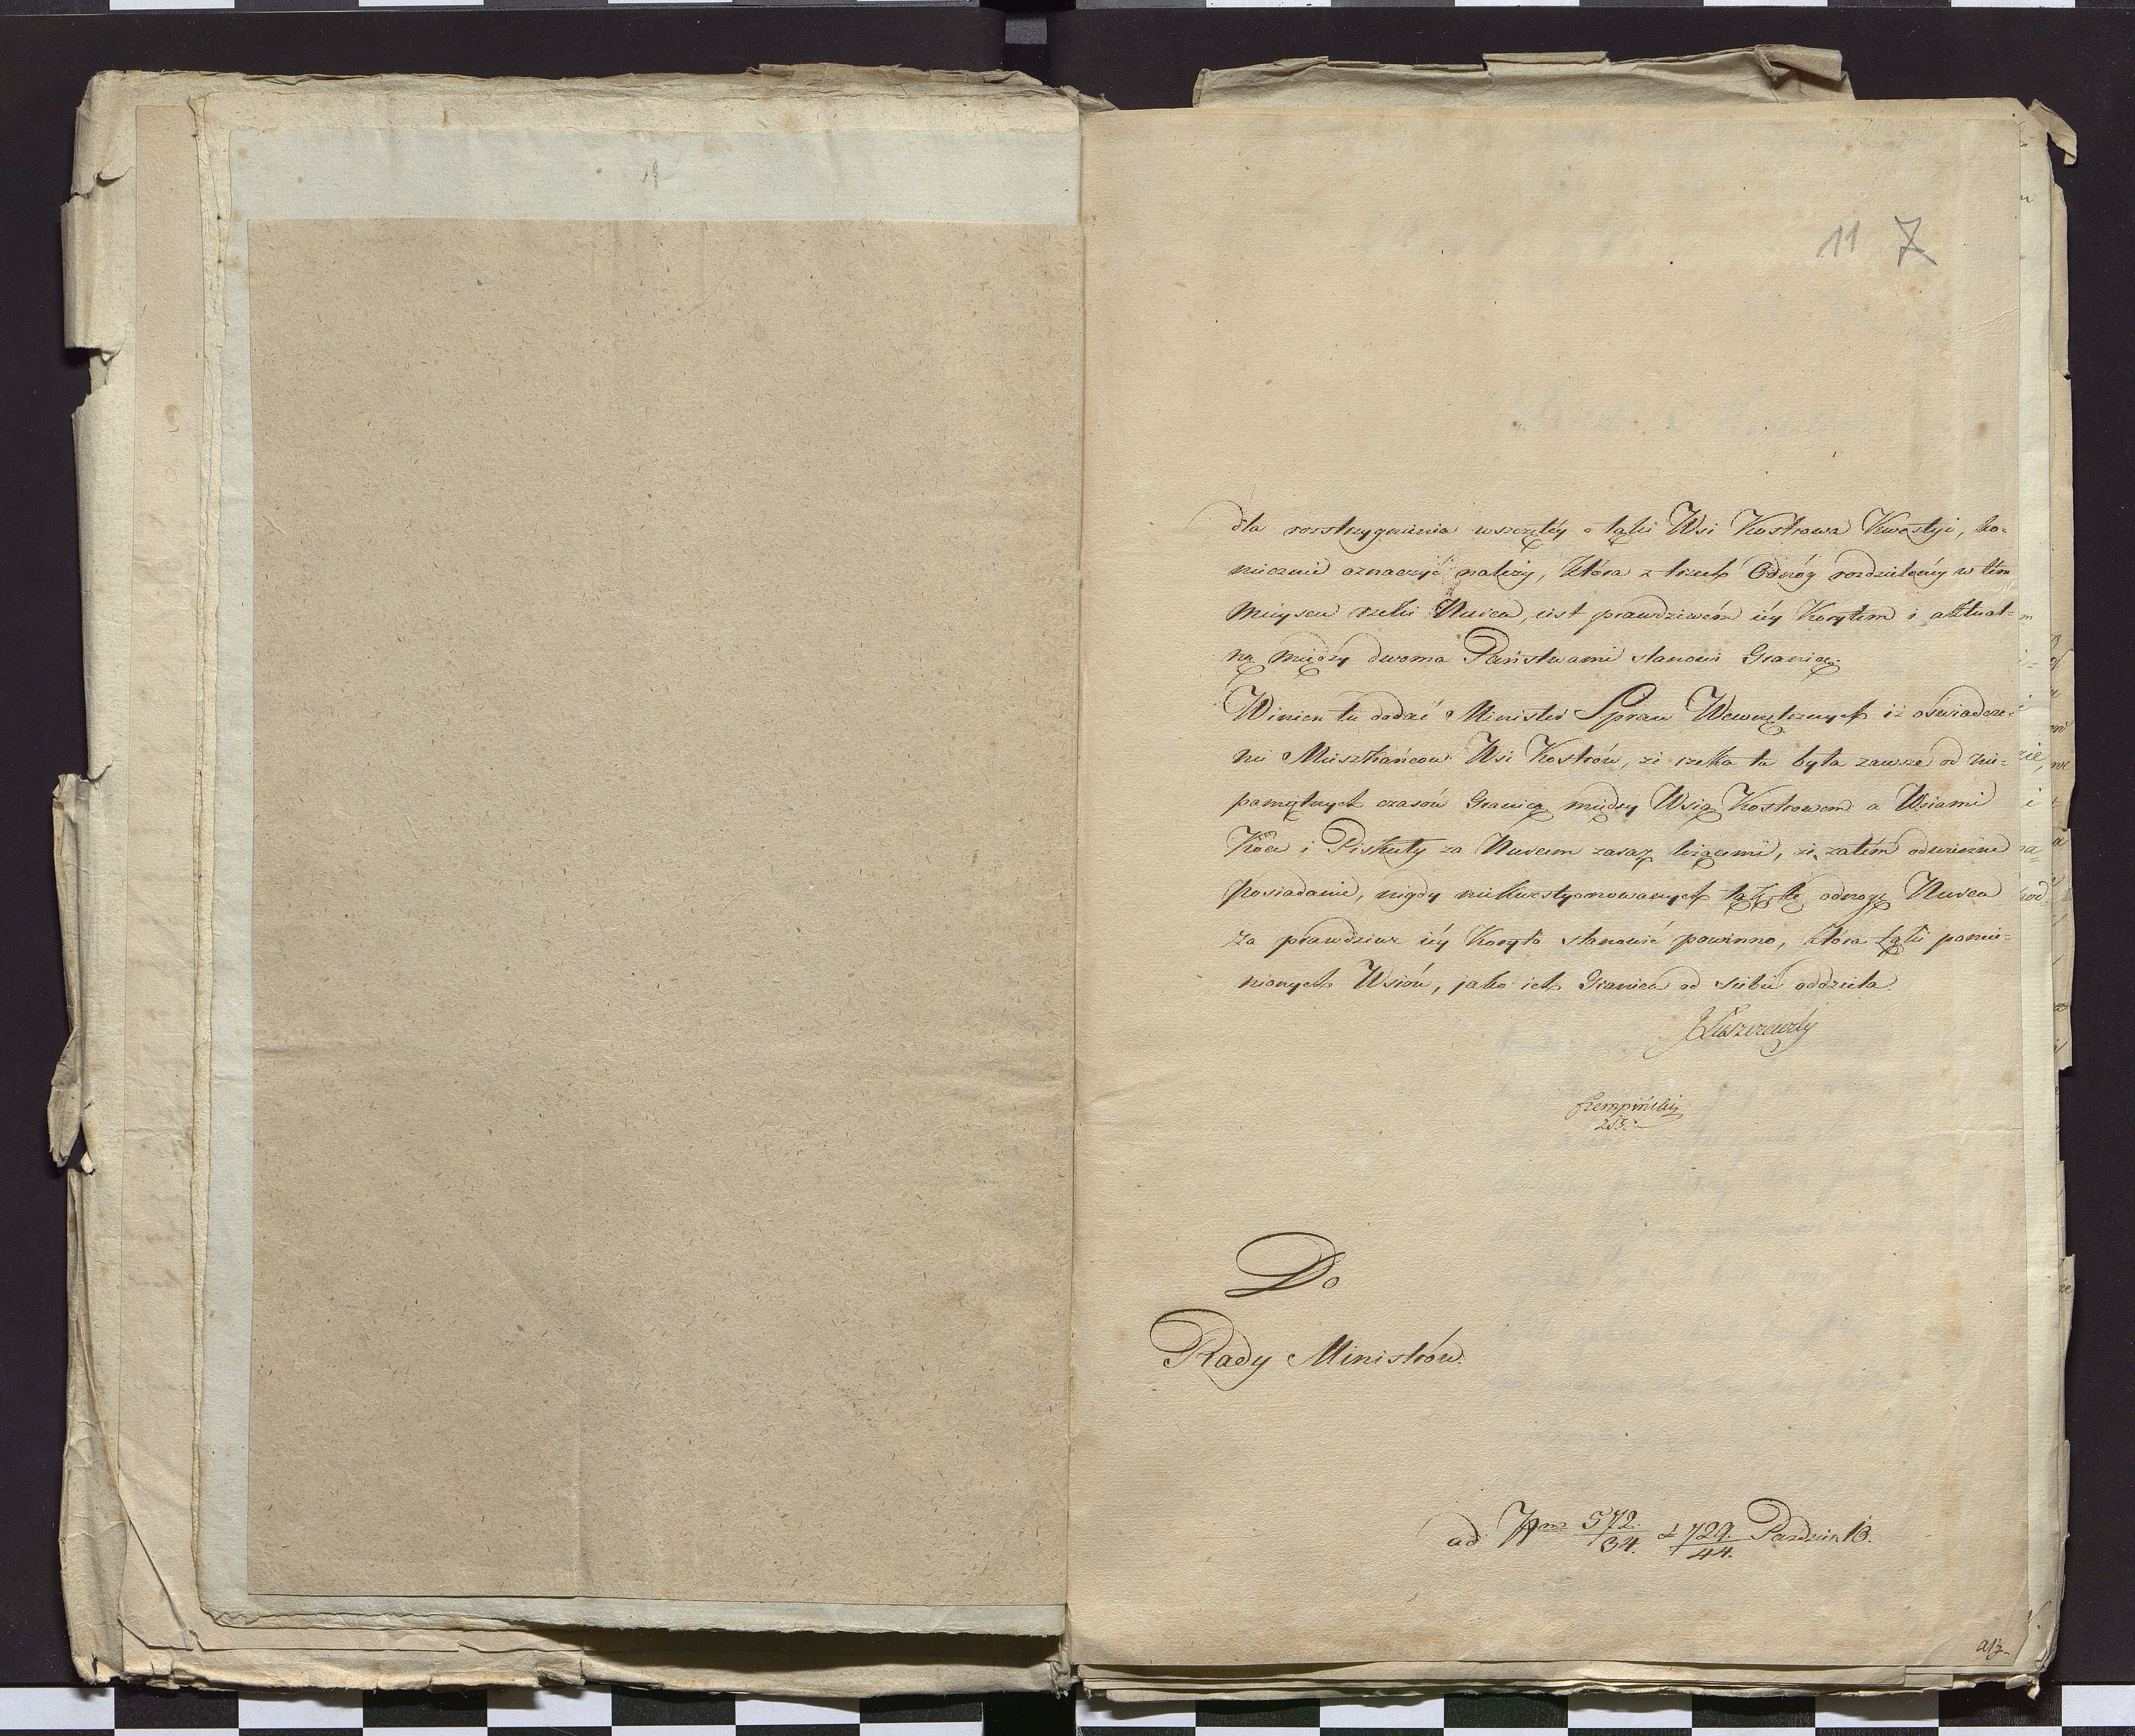 1
11 7
dla rozstrzygnienia wszczętéy o łąki Wsi Kostrowa Kwestyi, ko-
niecznie oznaczyć należy, która z trzech Odnóg rozdzieloney w tém
mieyscu rzeki Nurca, iest prawdziwém iéy Korytem i aktual-
ną między dwoma Państwami stanowi Granicę.
Winien tu dodać Minister Spraw Wewnętrznych iż oświadcze-
nie Mieszkańców Wsi Kostrów, że rzeka ta była zawsze od nie-
pamiętnych czasów Granicą między Wsią Kostrowem a Wsiami
Koce i Piskuły za Nurcem zaraz leżącemi, że zatém odwieczne
posiadanie, nigdy niekwestyonowanych łąk, tę odnogę Nurca
za prawdziwe iéy Koryto stanowić powinno, która łąki pomie-
nionych Wsiów, jako ich Granica od siebie oddziela.
JŁuszczewsky
Szempiński
Do
Rady Ministrów.
ad Nm 572./34. & 729./44. Pazdzier. 13.